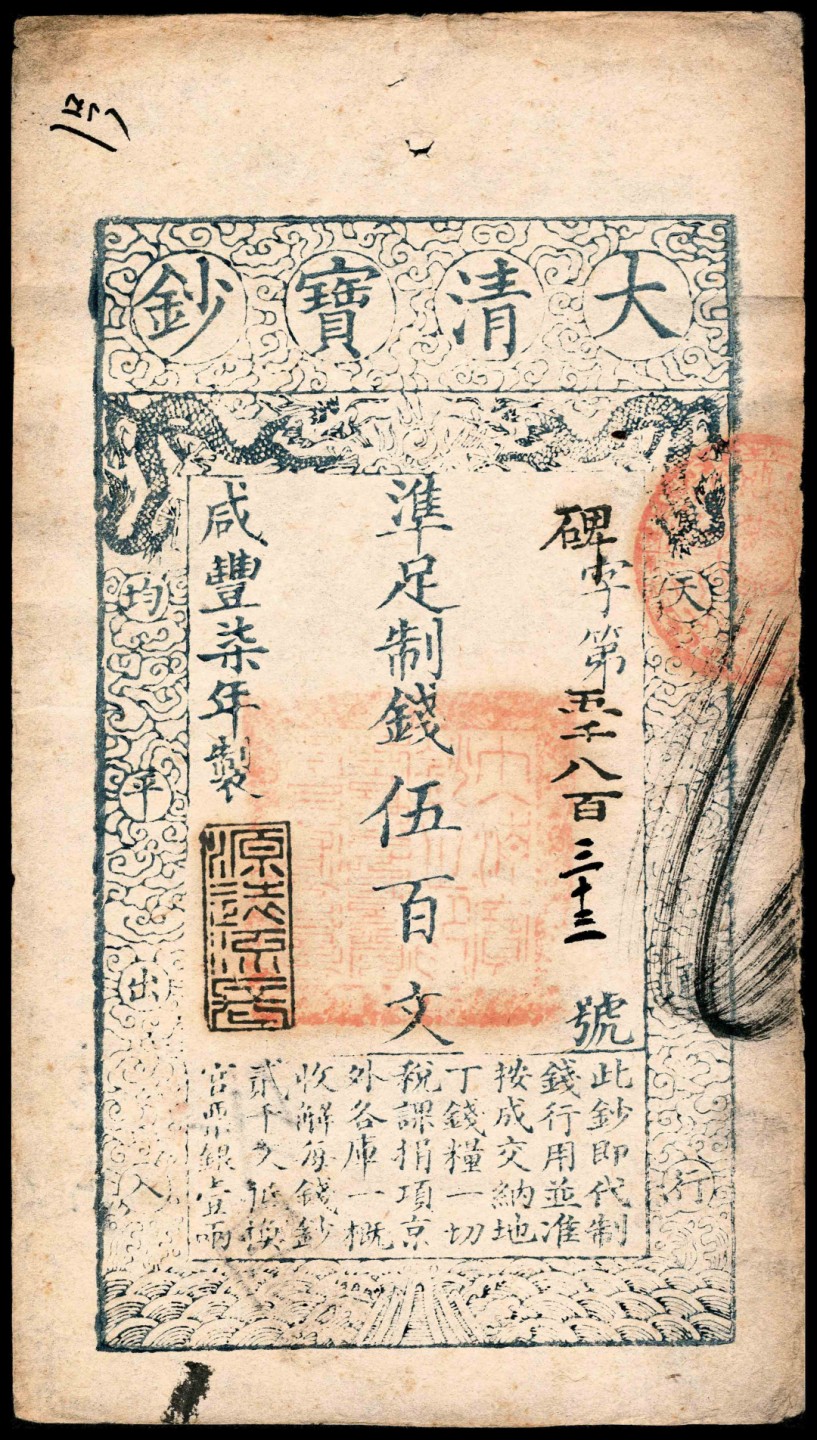 大清寶鈔
天
行
均平出入
碑字第五千八百三十三號
準足制錢伍百文
咸豐柒年製
源遠流長
此鈔即代制
錢行用並准
按成交納地
丁錢糧一切
稅課捐項京
外各庫一概
收解每錢鈔
貳千文抵換
官票銀壹兩